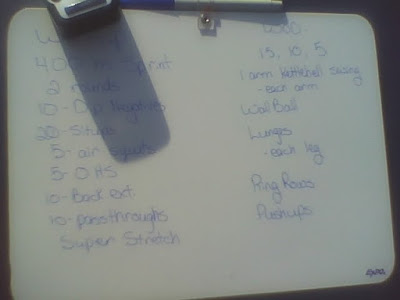 400 m Sprint
2 rounds
10 - Dip Negatives
20 - Situps
5 - air squats
5 - OHS
10 - Back ext.
10 - passthroughs
Super Stretch
WOD -
15, 10, 5
1 arm Kettlebell swing
- each arm
Wall Ball
Lunges
- each leg
Ring Rows
Pushups